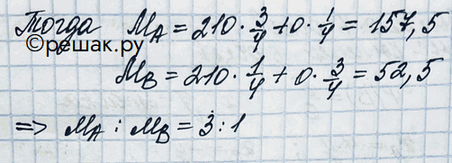 Тогда M_A = 210 · 3/4 + 0 · 1/4 = 157,5
©решак.ру
M_B = 210 · 1/4 + 0 · 3/4 = 52,5
=> M_A : M_B = 3 : 1